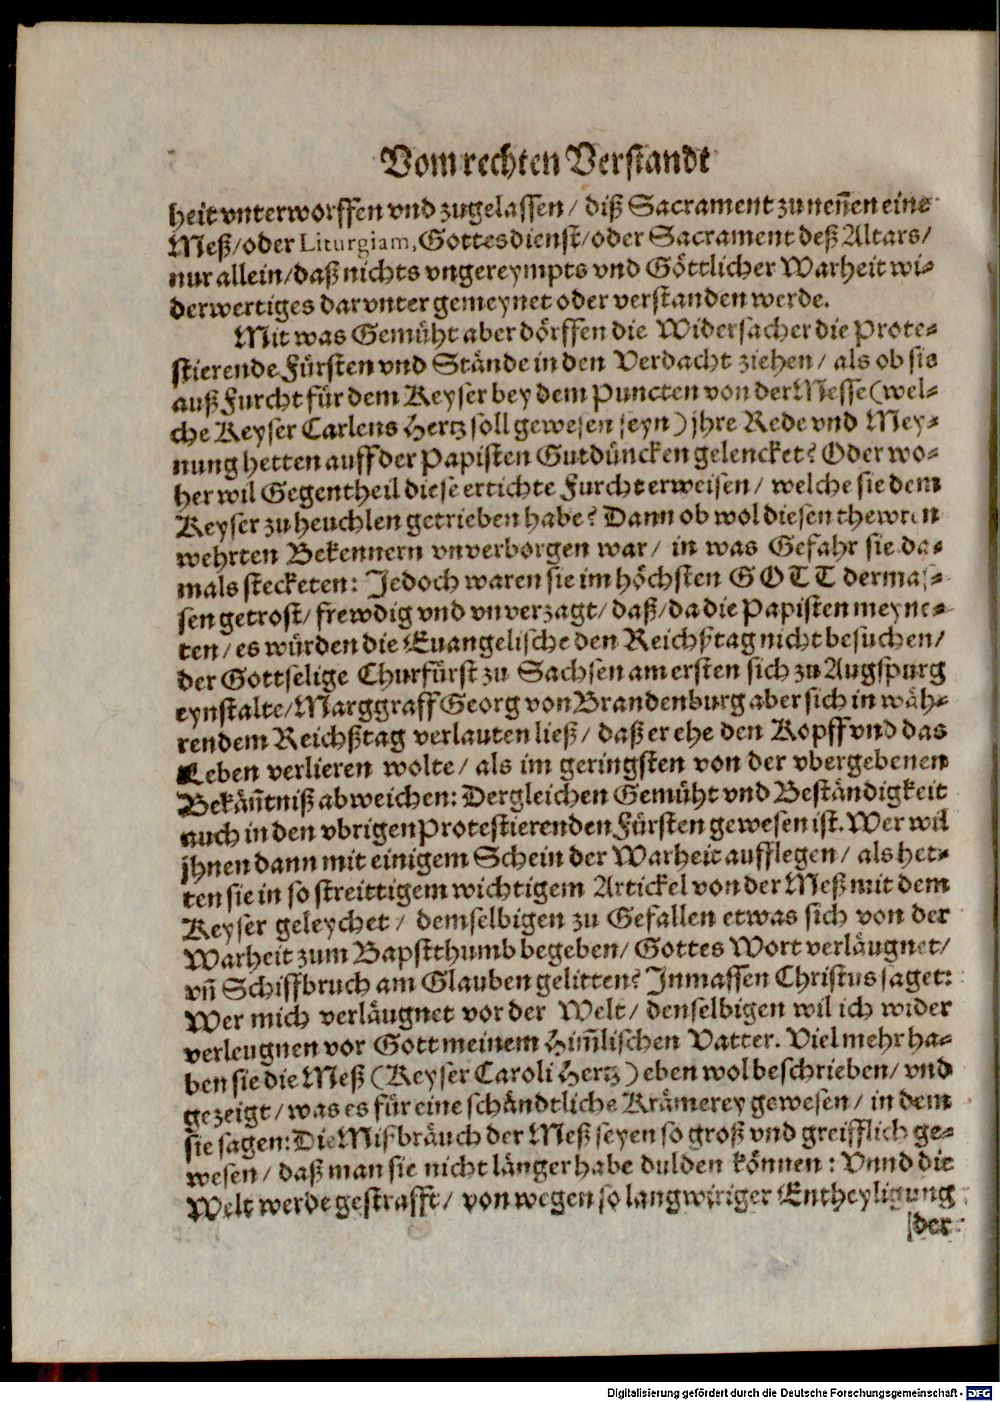 Vom rechten Verstandt
heit vnterworffen vnd zugelassen / diß Sacrament zu neñen eine
Meß/oder Liturgiam, Gottesdienst/oder Sacrament deß Altars/
nur allein/daß nichts vngereympts vnd Göttlicher Warheit wi-
derwertiges darvnter gemeynet oder verstanden werde.
Mit was Gemüht aber dörffen die Widersacher die Prote-
stierende Fürsten vnd Stände in den Verdacht ziehen / als ob sie
auß Furcht für dem Keyser bey dem Puncten von der Messe (wel-
che Keyser Carlens Hertz soll gewesen seyn) jhre Rede vnd Mey-
nung hetten auff der Papisten Gutdüncken gelencket? Oder wo-
her wil Gegentheil diese ertichte Furcht erweisen / welche sie dem
Keyser zu heuchlen getrieben habe? Dann ob wol diesen thewren
wehrten Bekennern vnverborgen war / in was Gefahr sie da-
mals stecketen: Jedoch waren sie im höchsten GOTT dermas-
sen getrost/ frewdig vnd vnverzagt/ daß/ da die Papisten meyne-
ten / es würden die Euangelische den Reichßtag nicht besuchen/
der Gottselige Churfürst zu Sachsen am ersten sich zu Augspurg
eynstalte/Marggraff Georg von Brandenburg aber sich in wäh-
rendem Reichßtag verlauten ließ / daß er ehe den Kopff vnd das
Leben verlieren wolte / als im geringsten von der vbergebenen
Bekäñtniß abweichen: Dergleichen Gemüht vnd Beständigkeit
auch in den vbrigen Protestierenden Fürsten gewesen ist. Wer wil
jhnen dann mit einigem Schein der Warheit aufflegen / als het-
ten sie in so streittigem wichtigem Artickel von der Meß mit dem
Keyser geleychet / demselbigen zu Gefallen etwas sich von der
Warheit zum Bapstthumb begeben/ Gottes Wort verläugnet/
vñ Schiffbruch am Glauben gelitten? Jnmassen Christus saget:
Wer mich verläugnet vor der Welt / denselbigen wil ich wider
verleugnen vor Gott meinem Him̃lischen Vatter. Viel mehr ha-
ben sie die Meß (Keyser Caroli Hertz) eben wol beschrieben/ vnd
gezeigt / was es für eine schändtliche Krämerey gewesen / in dem
sie sagen: Die Mißbräuch der Meß seyen so groß vnd greifflich ge-
wesen / daß man sie nicht länger habe dulden können: Vnnd die
Welt werde gestrafft / von wegen so langwiriger Entheyligung
der
Digitalisierung gefördert durch die Deutsche Forschungsgemeinschaft - DFG